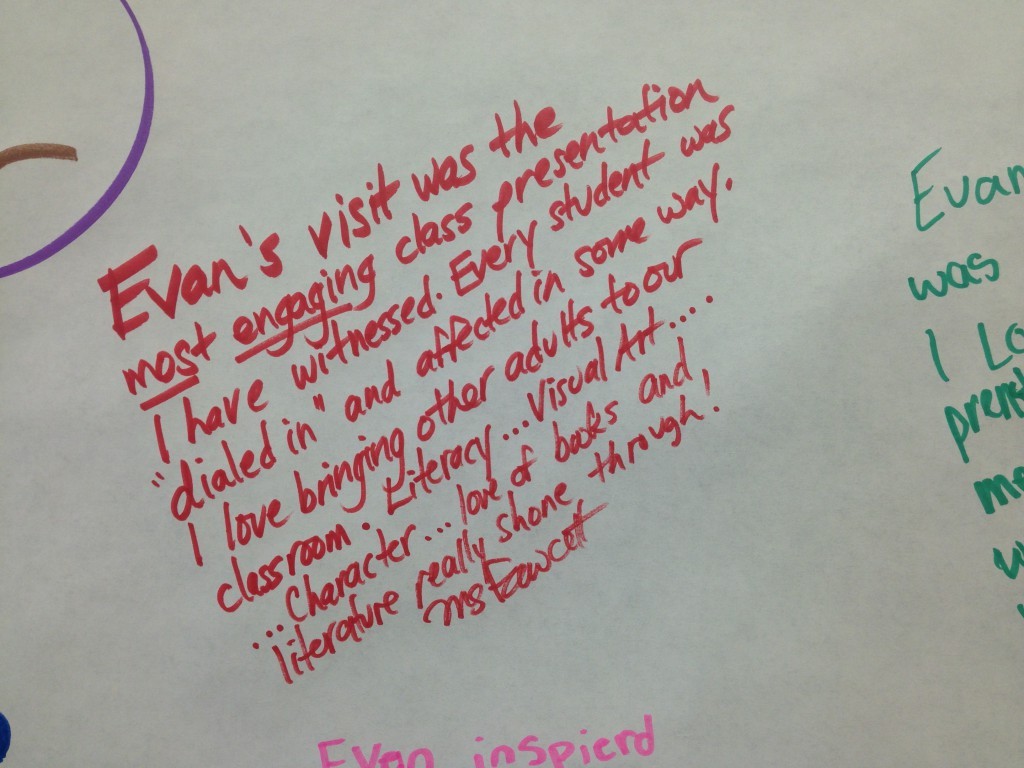 Evan's visit was the
most engaging class presentation
I have witnessed. Every student was
"dialed in" and affected in some way.
I love bringing other adults to our
classroom. Literacy... Visual Art...
...Character... love of books and
literature really shone through!
Ms Fawcett
Evan inspierd
Evan
was
I Lo